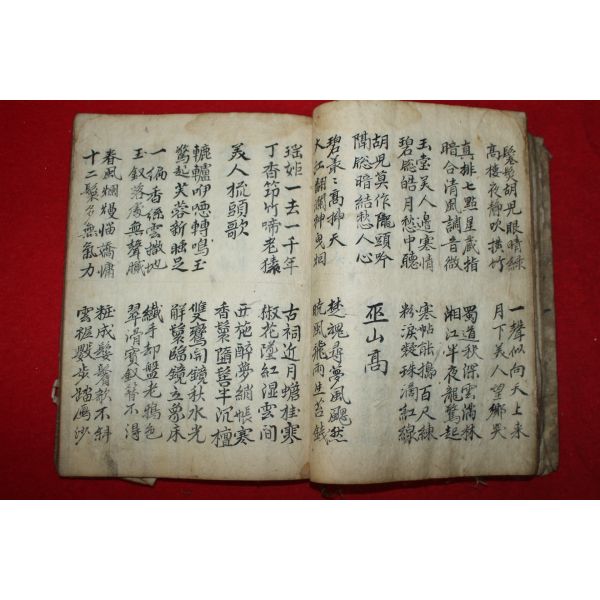 鬈髮胡兒眼睛綠
高樓夜靜吹横竹
一聲似向天上来
月下美人望鄉哭
真排七點星藏指
暗合清風調音徵
蜀道秋深雲满林
湘江半夜龍驚起
玉堂美人邊塞情
碧窓皓月愁中聽
寒帖能搗百尺練
粉淚凝珠滴紅線
胡兒莫作隴頭吟
隔窓暗結愁人心
巫山高
碧叢々高挿天
大江翻瀾神曳烟
楚魂尋夢風颸然
曉風飛雨生苔錢
瑶姫一去一千年
丁香筇竹啼老猿
古祠近月蟾桂寒
椒花墜紅湿雲間
美人梳頭歌
西施醉夢綃帳寒
香鬟隨髻半沉檀
轆轤咿啞轉鳴玉
驚起芙蓉新睡足
雙鸞開鏡秋水光
解鬟臨鏡立象床
一編香絲雲撒地
玉釵落處無聲膩
纖手却盤老鴉色
翠滑寶釵簪不得
春風爛熳惱嬌慵
十二鬟多無氣力
粧成鬖髿欹不斜
雲裾數步踏鴈沙